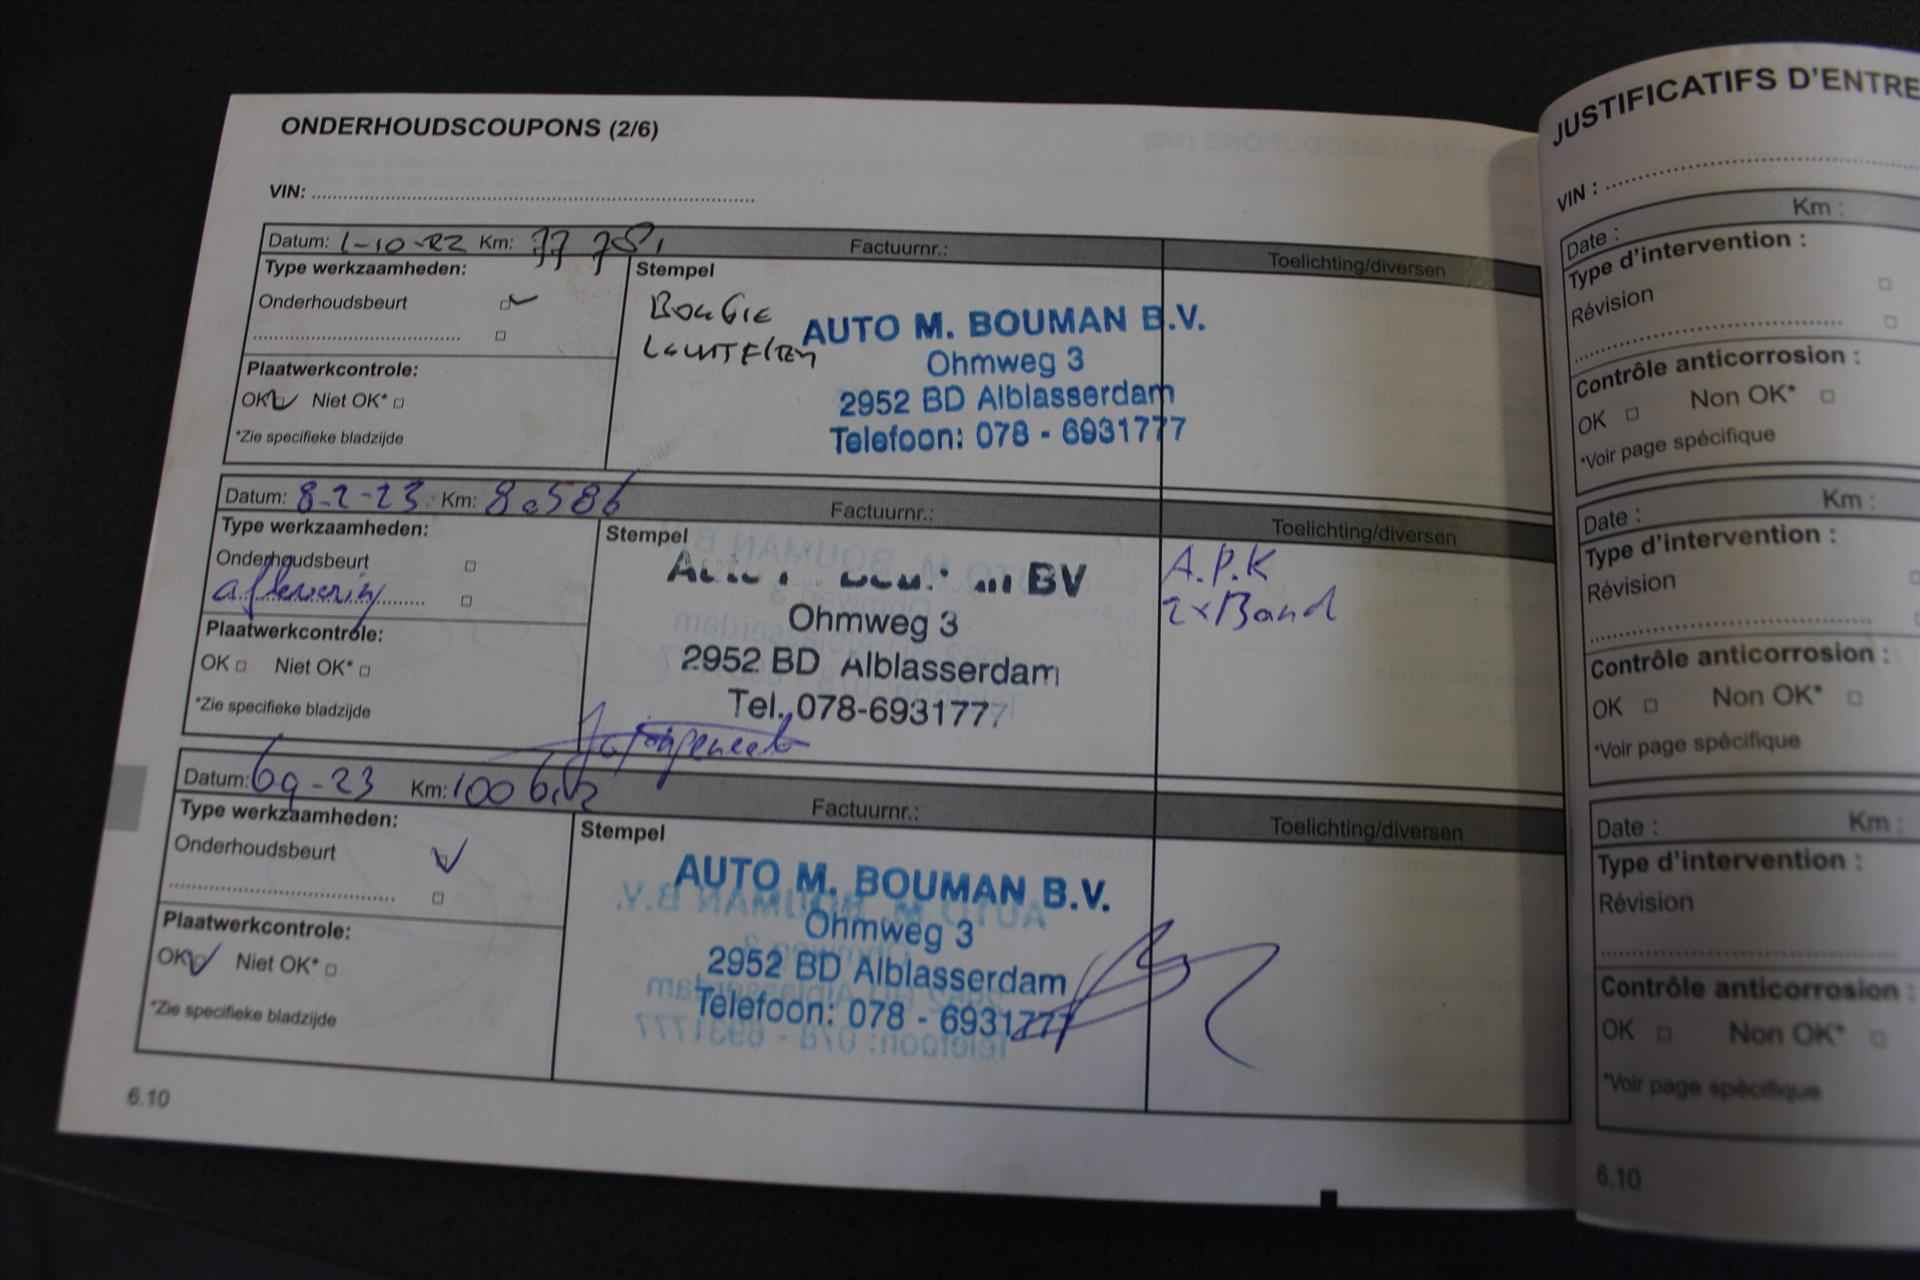 ONDERHOUDSCOUPONS (2/6)
VIN:
Datum: 1-10-22 Km: 77 781 Factuurnr.: Toelichting/diversen
Type werkzaamheden: Stempel
Onderhoudsbeurt
Bougie
Luchtfilter
AUTO M. BOUMAN B.V.
Ohmweg 3
2952 BD Alblasserdam
Telefoon: 078 - 6931777
Plaatwerkcontrole:
OK Niet OK*
*Zie specifieke bladzijde
Datum: 8-2-23 Km: 80586 Factuurnr.: Toelichting/diversen
Type werkzaamheden: Stempel
Onderhoudsbeurt
aflevering
BV
Ohmweg 3
2952 BD Alblasserdam
Tel. 078-6931777
A.P.K
2x Band
Plaatwerkcontrole:
OK Niet OK*
*Zie specifieke bladzijde
Datum: 6 9-23 Km: Factuurnr.: Toelichting/diversen
Type werkzaamheden: Stempel
Onderhoudsbeurt
AUTO M. BOUMAN B.V.
Ohmweg 3
2952 BD Alblasserdam
Telefoon: 078 - 6931777
Plaatwerkcontrole:
OK Niet OK*
*Zie specifieke bladzijde
6.10
JUSTIFICATIFS D'ENTRE
VIN :
Date : Km :
Type d'intervention :
Révision
Contrôle anticorrosion :
OK Non OK*
*Voir page spécifique
Date : Km :
Type d'intervention :
Révision
Contrôle anticorrosion :
OK Non OK*
*Voir page spécifique
Date : Km :
Type d'intervention :
Révision
Contrôle anticorrosion :
OK Non OK*
*Voir page spécifique
6.10